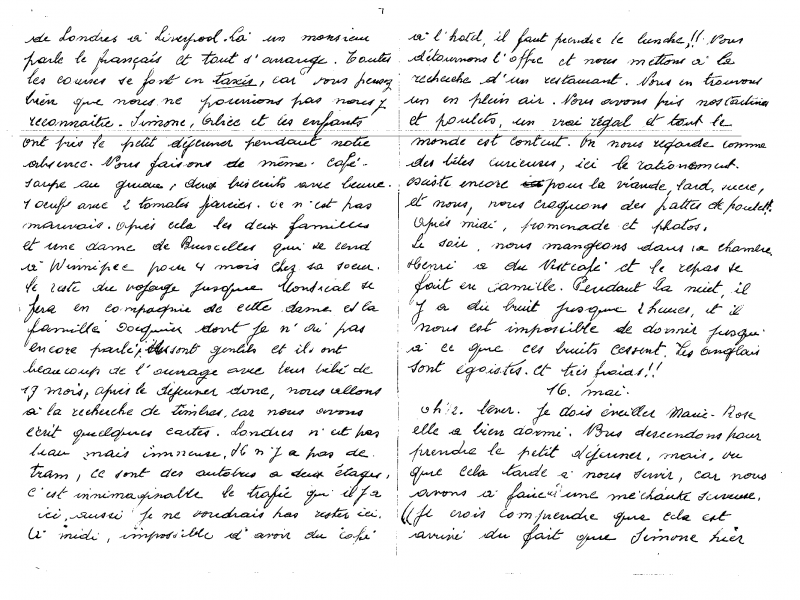 7
de Londres à Liverpool. Là un monsieur
parle le français et tout s'arrange. Toutes
les courses se font en taxis, car vous pensez
bien que nous ne pourrions pas nous y
reconnaître. Simone, et les enfants
ont pris le petit déjeuner pendant notre
absence. Nous faisons de même. café.
soupe au gruau, deux biscuits avec beurre.
1 oeufs avec 2 tomates farcies. ce n'est pas
mauvais. Après cela les deux familles
et une dame de Bruxelles qui se rend
à Winnipec pour 4 mois chez sa soeur.
le reste du voyage jusque Montréal se
fera en compagnie de cette dame et la
famille dont je n'ai pas
encore parlé, ils sont gentils et ils ont
beaucoup de l'ouvrage avec leur bébé de
19 mois, après le déjeuner donc, nous allons
à la recherche de timbres, car nous avons
écrit quelques cartes. Londres n'est pas
beau mais immense, Il n'y a pas de
tram, ce sont des autobus a deux étages,
c'est innimaginable le trafic qu'il y a
ici, aussi je ne voudrais pas rester ici.
à midi, impossible d'avoir du café
à l'hotel, il faut prendre le lunche,!! Nous
détournons l'offre et nous mettons à la
recherche d'un restaurant. Nous en trouvons
un en plein air. Nous avons pris nos tartines
et poulets, un vrai régal et tout le
monde est content. On nous regarde comme
des bêtes curieuses, ici le rationement.
existe encore pour la viande, lard, sucre,
et nous, nous craquons des pattes de poulet!!.
Après midi, promenade et photos.
Le soir, nous mangeons dans la chambre
Henri a du Nescafé et le repas se
fait en famille. Pendant la nuit, il
y a du bruit jusque 2 heures, et il
nous est impossible de dormir jusqu'
à ce que ces bruits cessent. Les anglais
sont égoistes. et très frais!!
16. mai.
7h½. lever. Je dois éveiller Marie-Rose
elle a bien dormi. Nous descendons pour
prendre le petit déjeuner, mais, vu
que cela tarde à nous servir, car nous
avons à faire à une méchante serveuse.
((Je crois comprendre que cela est
arrivé du fait que Simone hier